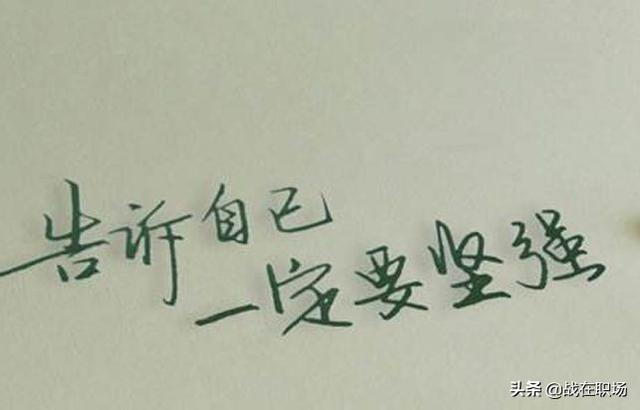 告诉自己
一定要坚强
头条 @战在职场